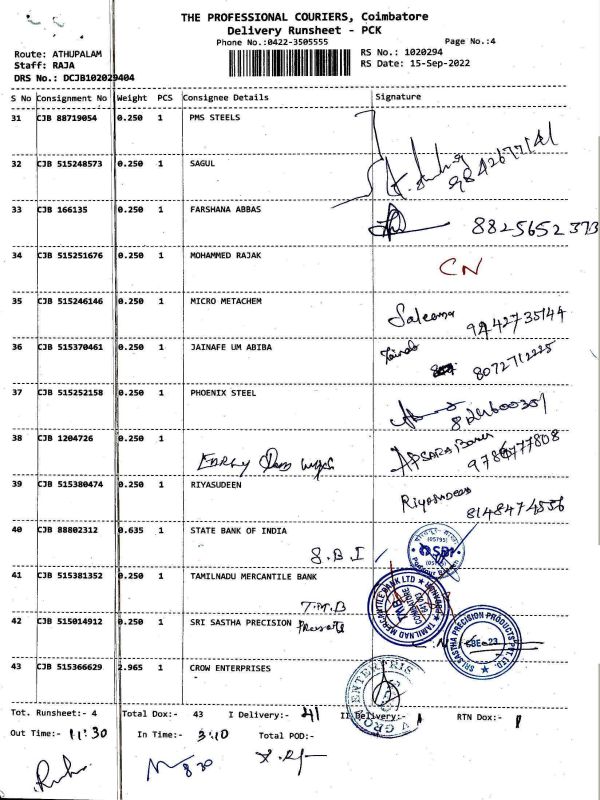 THE PROFESSIONAL COURIERS, Coimbatore
Delivery Runsheet - PCK
Phone No.:0422-3505555 Page No.:4
Route: ATHUPALAM RS No.: 1020294
Staff: RAJA RS Date: 15-Sep-2022
DRS No.: DCJB102029404
S No Consignment No Weight PCS Consignee Details Signature
31 CJB 88719054 0.250 1 PMS STEELS
32 CJB 515248573 0.250 1 SAGUL
33 CJB 166135 0.250 1 FARSHANA ABBAS
8825652373
34 CJB 515251676 0.250 1 MOHAMMED RAJAK CN
35 CJB 515246146 0.250 1 MICRO METACHEM
Saleema 9442735144
36 CJB 515370461 0.250 1 JAINAFE UM ABIBA
8072712225
37 CJB 515252158 0.250 1 PHOENIX STEEL
38 CJB 1204726 0.250 1
APSARA
39 CJB 515380474 0.250 1 RIYASUDEEN
Riyasudeen 8148474556
40 CJB 88802312 0.635 1 STATE BANK OF INDIA
S.B.I
SBI
(05795)
41 CJB 515381352 0.250 1 TAMILNADU MERCANTILE BANK
T.M.B
TAMILNAD MERCANTILE BANK LTD
TMB
42 CJB 515014912 0.250 1 SRI SASTHA PRECISION
SRI SASTHA PRECISION PRODUCTS PVT. LTD.
CBE-23
43 CJB 515366629 2.965 1 CROW ENTERPRISES
ENTERPRIS
Tot. Runsheet:- 4 Total Dox:- 43 I Delivery:- 41 II Delivery:- 1 RTN Dox:- 1
Out Time:- 11:30 In Time:- 3:10 Total POD:-